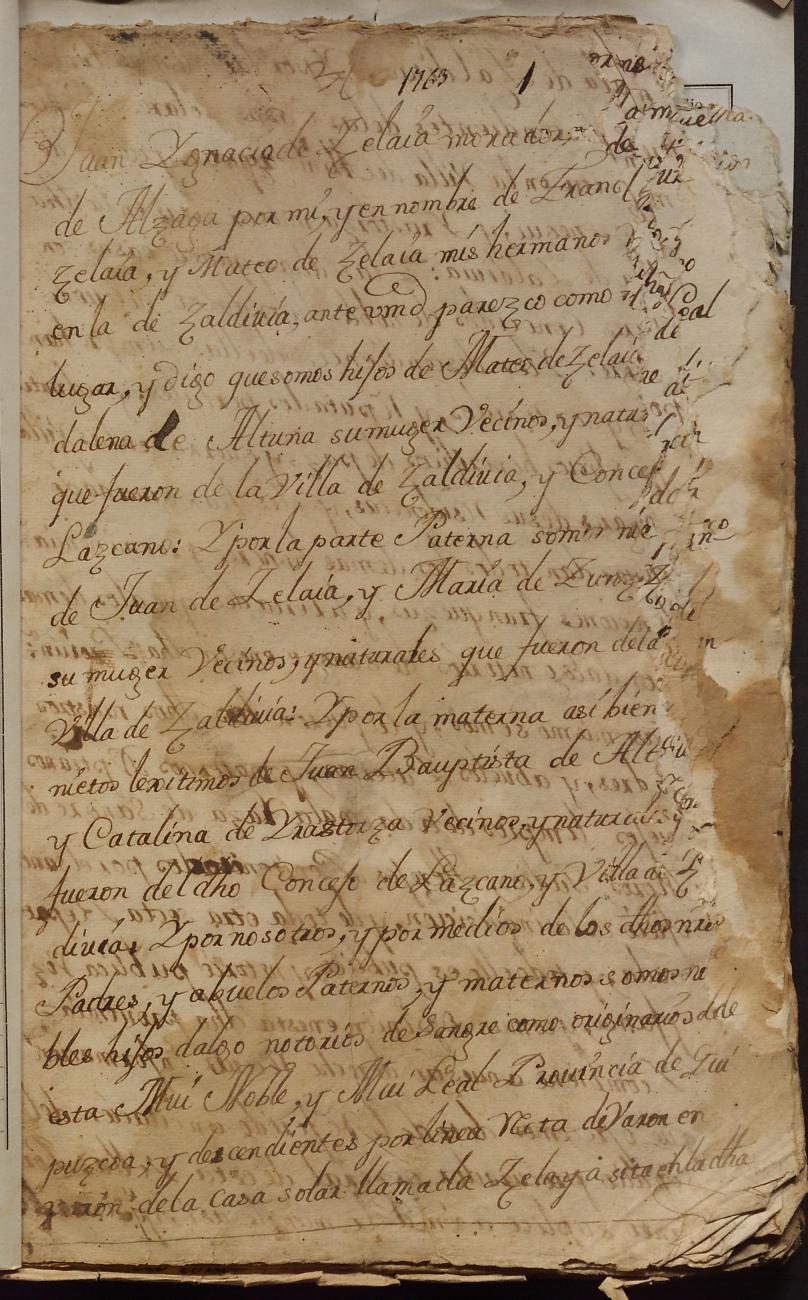 1763 1
Juan Ygnacio de Zelaia morador
de Alzaga por mi, y en nombre de Franc
Zelaia, y Mateo de Zelaia mis hermanos
en la de Zaldivia, ante vmd parezco como
lugar, y digo que somos hijos de Mateo de Zelaia
dalena de Altuna su muger Vecinos, y natur
que fueron de la Villa de Zaldivia, y Concej
Lazcano: Y por la parte Paterna somos nie
de Juan de Zelaia, y Maria de
su muger Vecinos, y naturales que fueron de la
Villa de Zaldivia: Y por la materna asi bien
nietos lexitimos de Juan Bauptista de Alt
y Catalina de Vrastorza Vecinos, y naturales
fueron del dho Concejo de Lazcano, y Villa de Z
divia: Y por nosotros, y por medios de los dhos nros
Padres, y abuelos Paternos, y maternos somos no
bles hijos dalgo notorios de sangre como originarios de
esta Mui Noble, y Mui Leal Provincia de Gui
puzcoa, y descendientes por linea Reta de Varon en
de la casa solar llamada Zelaya sita en la dha